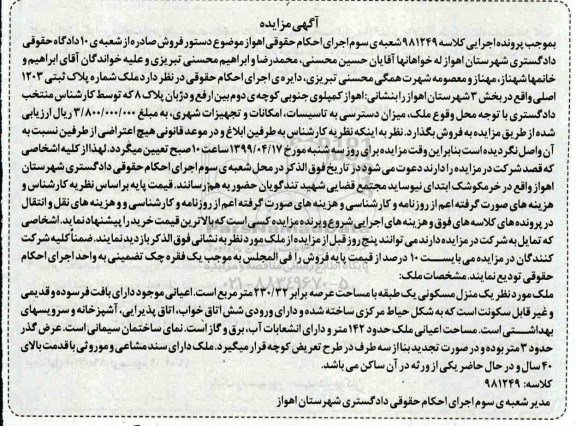 آگهی مزایده
بموجب پرونده اجرایی کلاسه ۹۸۱۲۴۹ شعبه ی سوم اجرای احکام حقوقی اهواز موضوع دستور فروش صادره از شعبه ی ۱۰ دادگاه حقوقی
دادگستری شهرستان اهواز له خواهانها آقایان حسین محسنی، محمدرضا و ابراهیم محسنی تبریزی و علیه خواندگان آقای ابراهیم و
خانمها شهناز، مهناز و معصومه شهرت همگی محسنی تبریزی، دایره ی اجرای احکام حقوقی در نظر دارد ملک شماره پلاک ثبتی ۱۲۰۳
اصلی واقع در بخش ۳ شهرستان اهواز را بنشانی: اهواز کمپلوی جنوبی کوچه ی دوم بین ارفع و دژبان پلاک ۸ که توسط کارشناس منتخب
دادگستری با توجه محل وقوع ملک، میزان دسترسی به تاسیسات، امکانات و تجهیزات شهری، به مبلغ ۳/۸۰۰/۰۰۰/۰۰۰ ریال ارزیابی
شده از طریق مزایده به فروش بگذارد. نظر به اینکه نظریه کارشناس به طرفین ابلاغ و در موعد قانونی هیچ اعتراضی از طرفین نسبت به
آن واصل نگردیده است بنابراین وقت مزایده برای روز سه شنبه مورخ ۱۳۹۹/۰۴/۱۷ ساعت ۱۰ صبح تعیین میگردد. لهذا از کلیه اشخاصی
که قصد شرکت در مزایده را دارند دعوت می شود در تاریخ فوق الذکر در محل شعبه ی سوم اجرای احکام حقوقی دادگستری شهرستان
اهواز واقع در خرمکوشک ابتدای نیوساید مجتمع قضایی شهید تندگویان حضور به هم رسانند. قیمت پایه بر اساس نظریه کارشناس و
هزینه های صورت گرفته اعم از روزنامه و کارشناسی و هزینه های صورت گرفته اعم از روزنامه و کارشناسی و و هزینه های نقل و انتقال
در پرونده های کلاسه های فوق و هزینه های اجرایی شروع و برنده مزایده کسی است که بالاترین قیمت خرید را پیشنهاد نماید. اشخاصی
که تمایل به شرکت در مزایده دارند می توانند پنج روز قبل از مزایده از ملک مورد نظر به نشانی فوق الذکر بازدید نمایند. ضمناً کلیه شرکت
کنندگان در مزایده می بایست ۱۰ درصد از قیمت پایه فروش را فی المجلس به موجب یک فقره چک تضمینی به واحد اجرای احکام
حقوقی تودیع نمایند. مشخصات ملک:
ملک مورد نظر یک منزل مسکونی یک طبقه با مساحت عرصه برابر ۲۳۰/۳۲ متر مربع است. اعیانی موجود دارای بافت فرسوده و قدیمی
و غیر قابل سکونت است که به شکل حیاط مرکزی ساخته شده و دارای ورودی شش اتاق خواب، اتاق پذیرایی، آشپزخانه و سرویسهای
بهداشتی است. مساحت اعیانی ملک حدود ۱۴۲ متر و دارای انشعابات آب، برق و گاز است. نمای ساختمان سیمانی است. عرض گذر
حدود ۳ متر بوده و در صورت تجدید بنا از سه طرف در طرح تعریض کوچه قرار میگیرد. ملک دارای سند مشاعی و موروثی با قدمت بالای
۴۰ سال و در حال حاضر یکی از ورثه در آن ساکن می باشد.
کلاسه: ۹۸۱۲۴۹
مدیر شعبه ی سوم اجرای احکام حقوقی دادگستری شهرستان اهواز